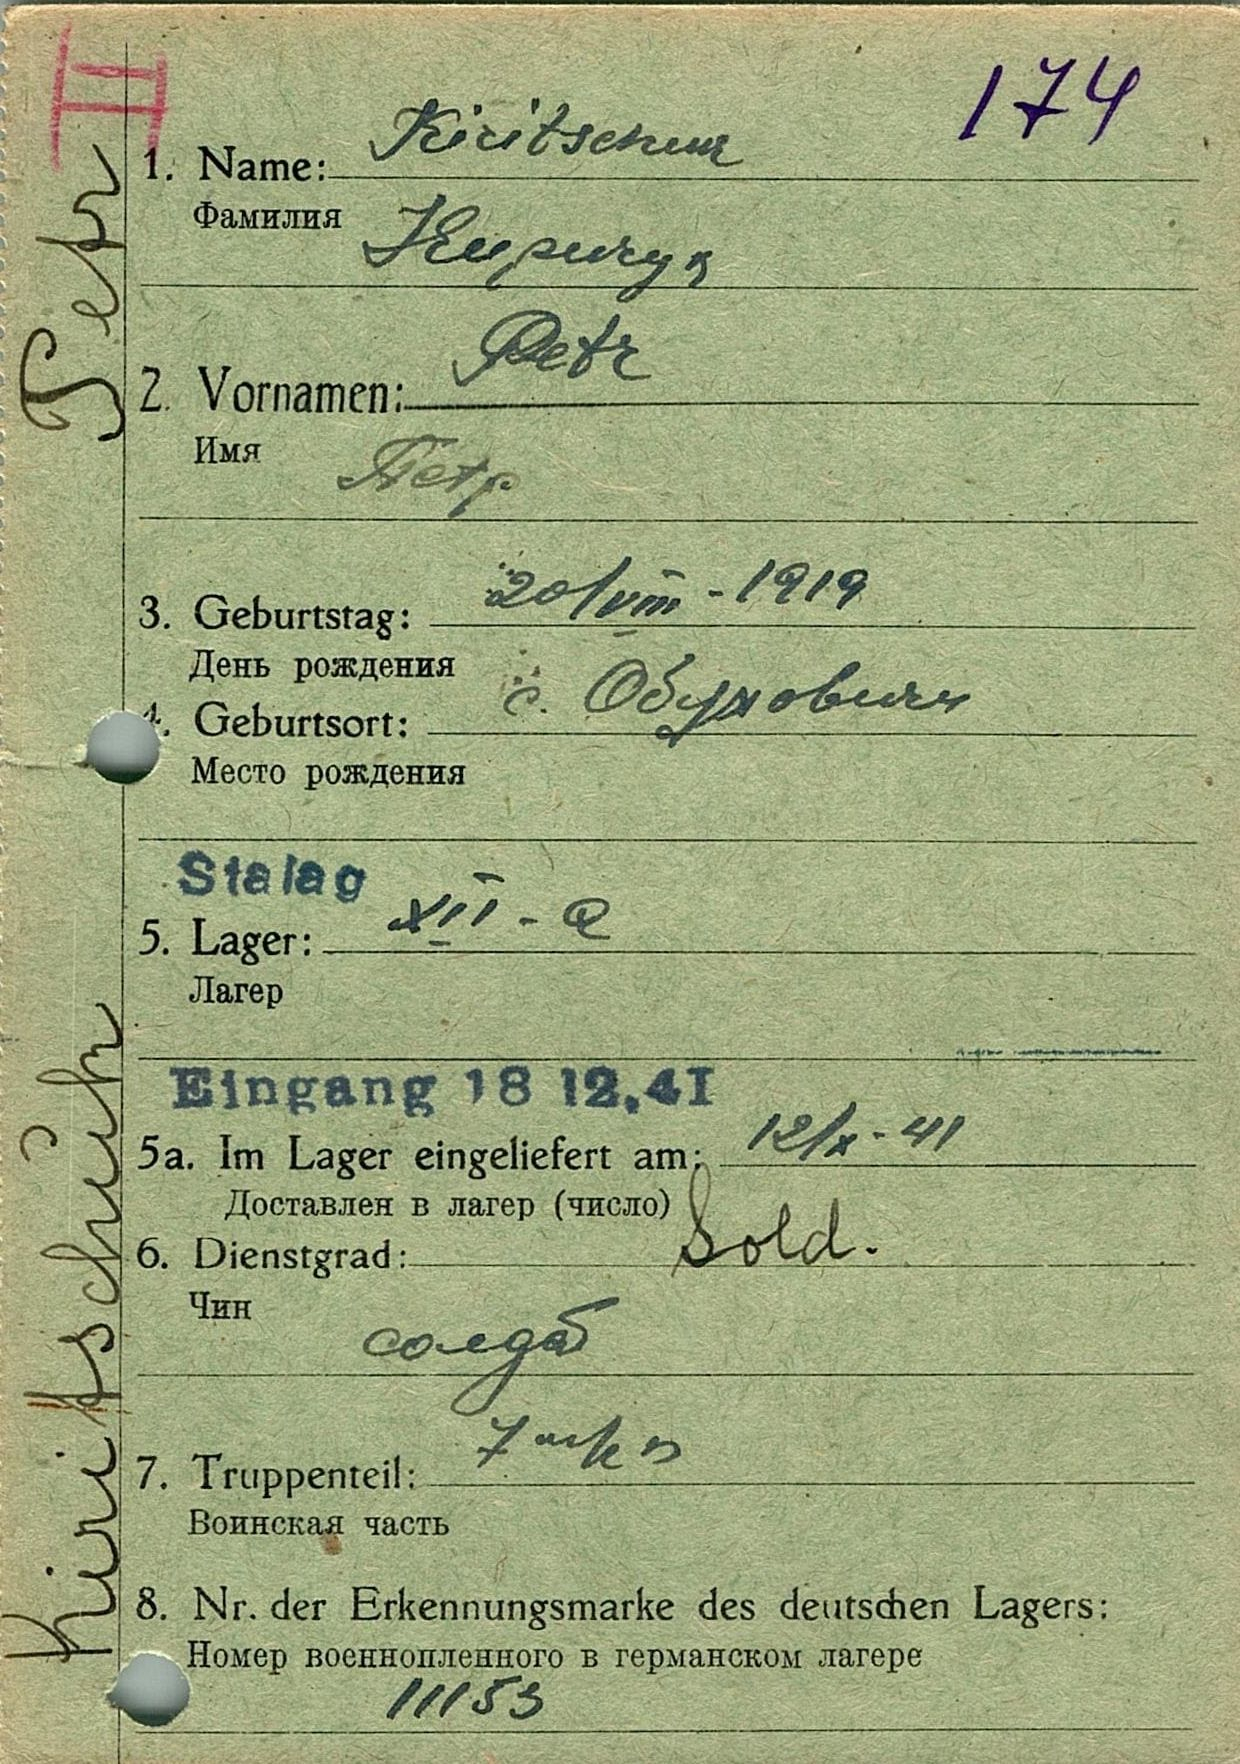 II
174
Kiritschuk
1. Name:
Фамилия
Киричук
Petr
2. Vornamen:
Имя
Петр
20/VIII - 1919
3. Geburtstag:
День рождения
с. Обуховичи
4. Geburtsort:
Место рождения
Stalag
XII - A
5. Lager:
Лагер
Eingang 18 12.41
12/X - 41
5a. Im Lager eingeliefert am:
Доставлен в лагер (число)
Sold.
6. Dienstgrad:
Чин
солдат
7
7. Truppenteil:
Воинская часть
8. Nr. der Erkennungsmarke des deutschen Lagers:
Номер военнопленного в германском лагере
11153
Kiritschuk Petr